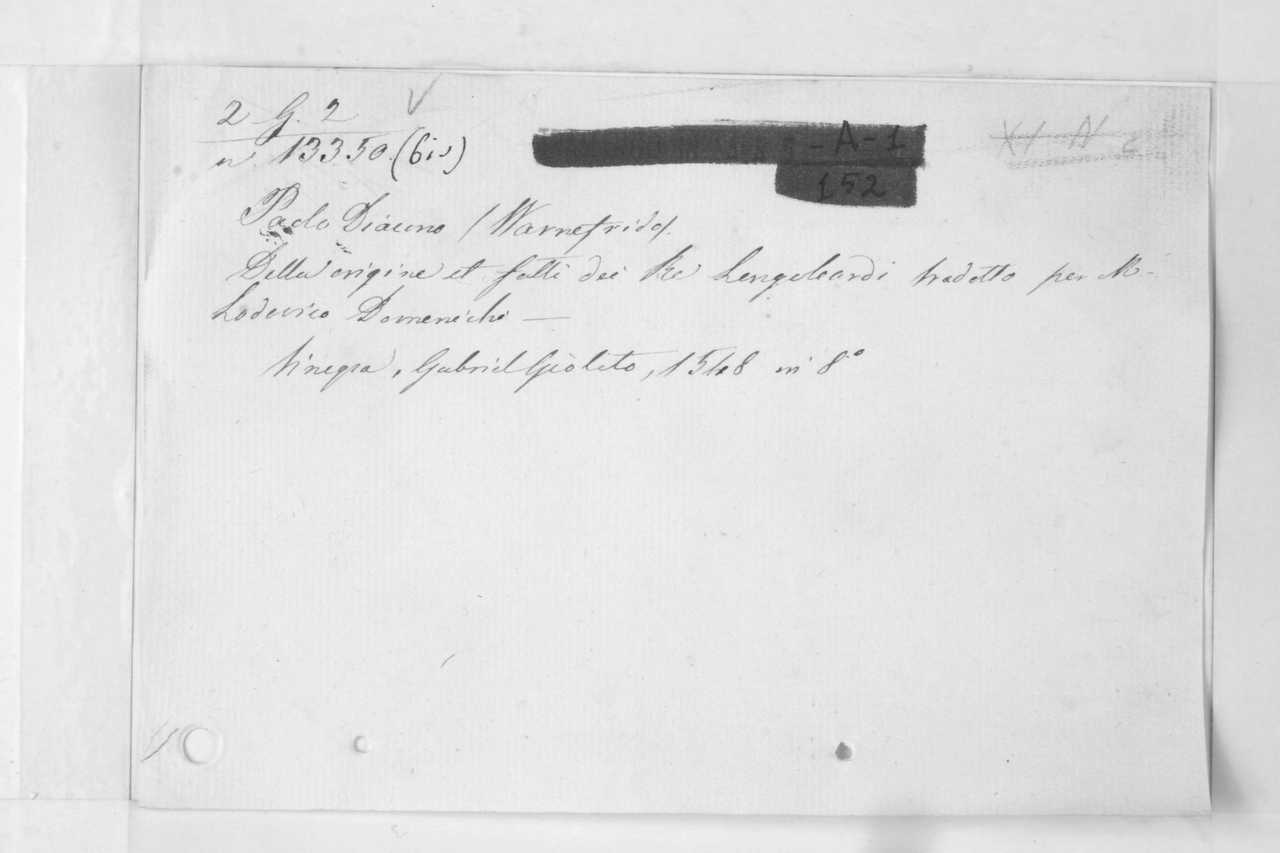 2 G. 2
n. 13350. (bis)
- A - 1
152
XI N 2
Paolo Diacono (Warnefrido).
Della origine et fatti dei Re Longobardi tradotto per M.
Lodovico Domenichi —
Vinegia, Gabriel Giolito, 1548 in 8°